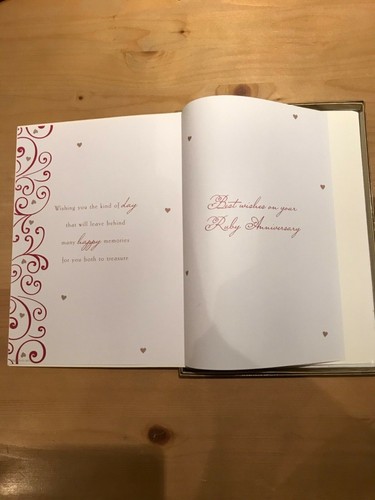 Wishing you the kind of day
that will leave behind
many happy memories
for you both to treasure
Best wishes on your
Ruby Anniversary